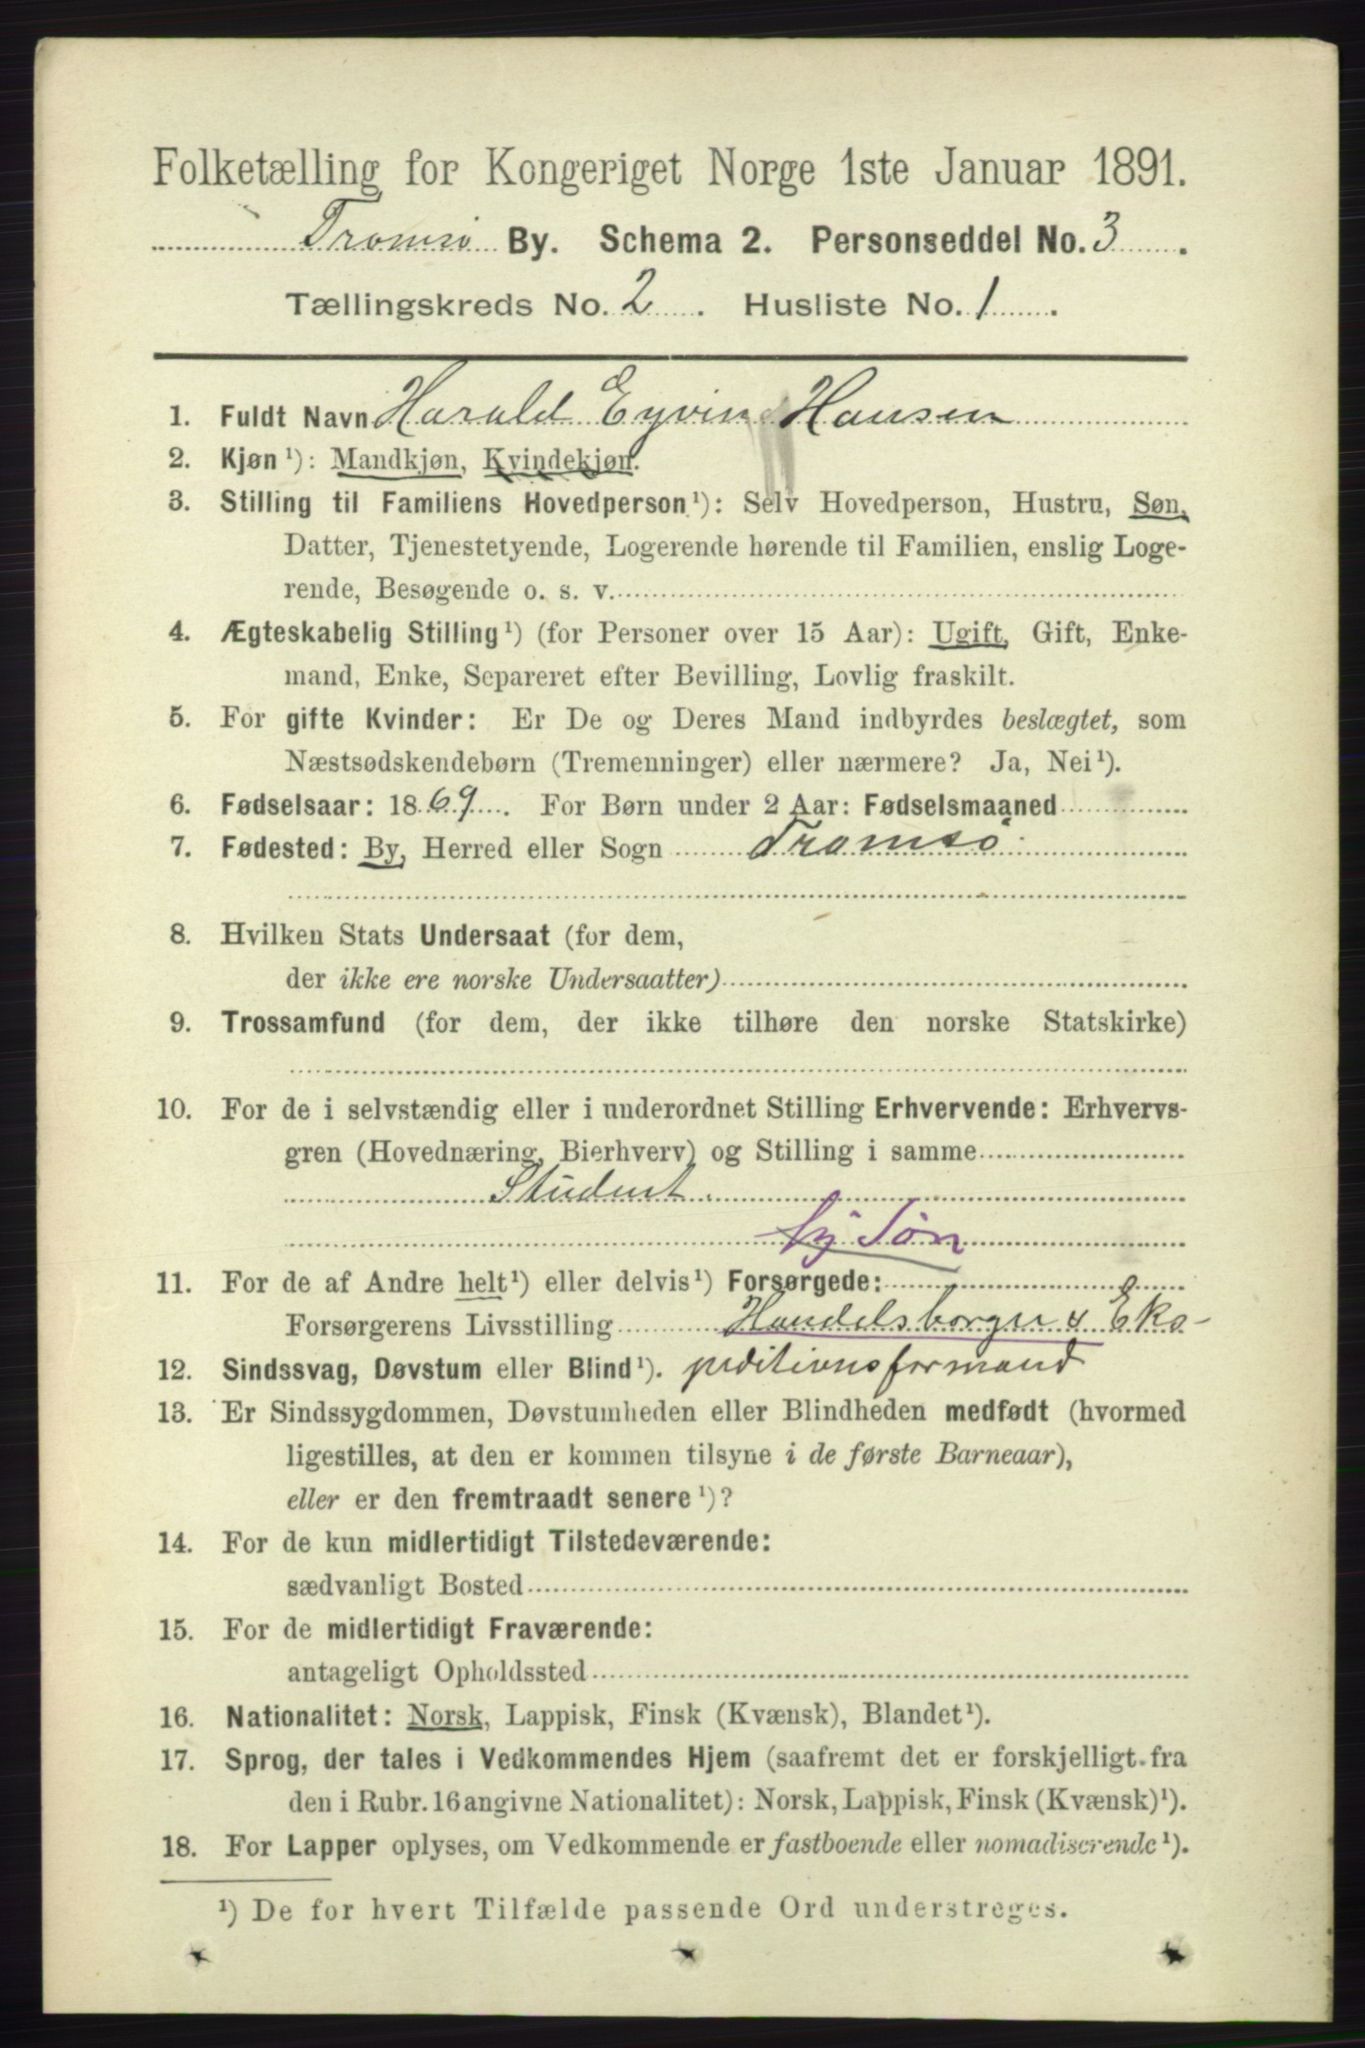 Folketælling for Kongeriget Norge 1ste Januar 1891.
Tromsø By. Schema 2. Personseddel No. 3.
Tællingskreds No. 2. Husliste No. 1.
1. Fuldt Navn Harald Eyvin Hansen
2. Kjøn¹): Mandkjøn, Kvindekjøn.
3. Stilling til Familiens Hovedperson¹): Selv Hovedperson, Hustru, Søn,
Datter, Tjenestetyende, Logerende hørende til Familien, enslig Loge-
rende, Besøgende o. s. v.
4. Ægteskabelig Stilling¹) (for Personer over 15 Aar): Ugift, Gift, Enke-
mand, Enke, Separeret efter Bevilling, Lovlig fraskilt.
5. For gifte Kvinder: Er De og Deres Mand indbyrdes beslægtet, som
Næstsødskendebørn (Tremenninger) eller nærmere? Ja, Nei¹).
6. Fødselsaar: 1869. For Børn under 2 Aar: Fødselsmaaned
7. Fødested: By, Herred eller Sogn Tromsø
8. Hvilken Stats Undersaat (for dem,
der ikke ere norske Undersaatter)
9. Trossamfund (for dem, der ikke tilhøre den norske Statskirke)
10. For de i selvstændig eller i underordnet Stilling Erhvervende: Erhvervs-
gren (Hovednæring, Bierhverv) og Stilling i samme
Student.
Søn
11. For de af Andre helt¹) eller delvis¹) Forsørgede:
Forsørgerens Livsstilling Handelsborger & Eks-
12. Sindssvag, Døvstum eller Blind¹). peditionsformand
13. Er Sindssygdommen, Døvstumheden eller Blindheden medfødt (hvormed
ligestilles, at den er kommen tilsyne i de første Barneaar),
eller er den fremtraadt senere¹)?
14. For de kun midlertidigt Tilstedeværende:
sædvanligt Bosted
15. For de midlertidigt Fraværende:
antageligt Opholdssted
16. Nationalitet: Norsk, Lappisk, Finsk (Kvænsk), Blandet¹).
17. Sprog, der tales i Vedkommendes Hjem (saafremt det er forskjelligt fra
den i Rubr. 16 angivne Nationalitet): Norsk, Lappisk, Finsk (Kvænsk)¹).
18. For Lapper oplyses, om Vedkommende er fastboende eller nomadiserende¹).
¹) De for hvert Tilfælde passende Ord understreges.